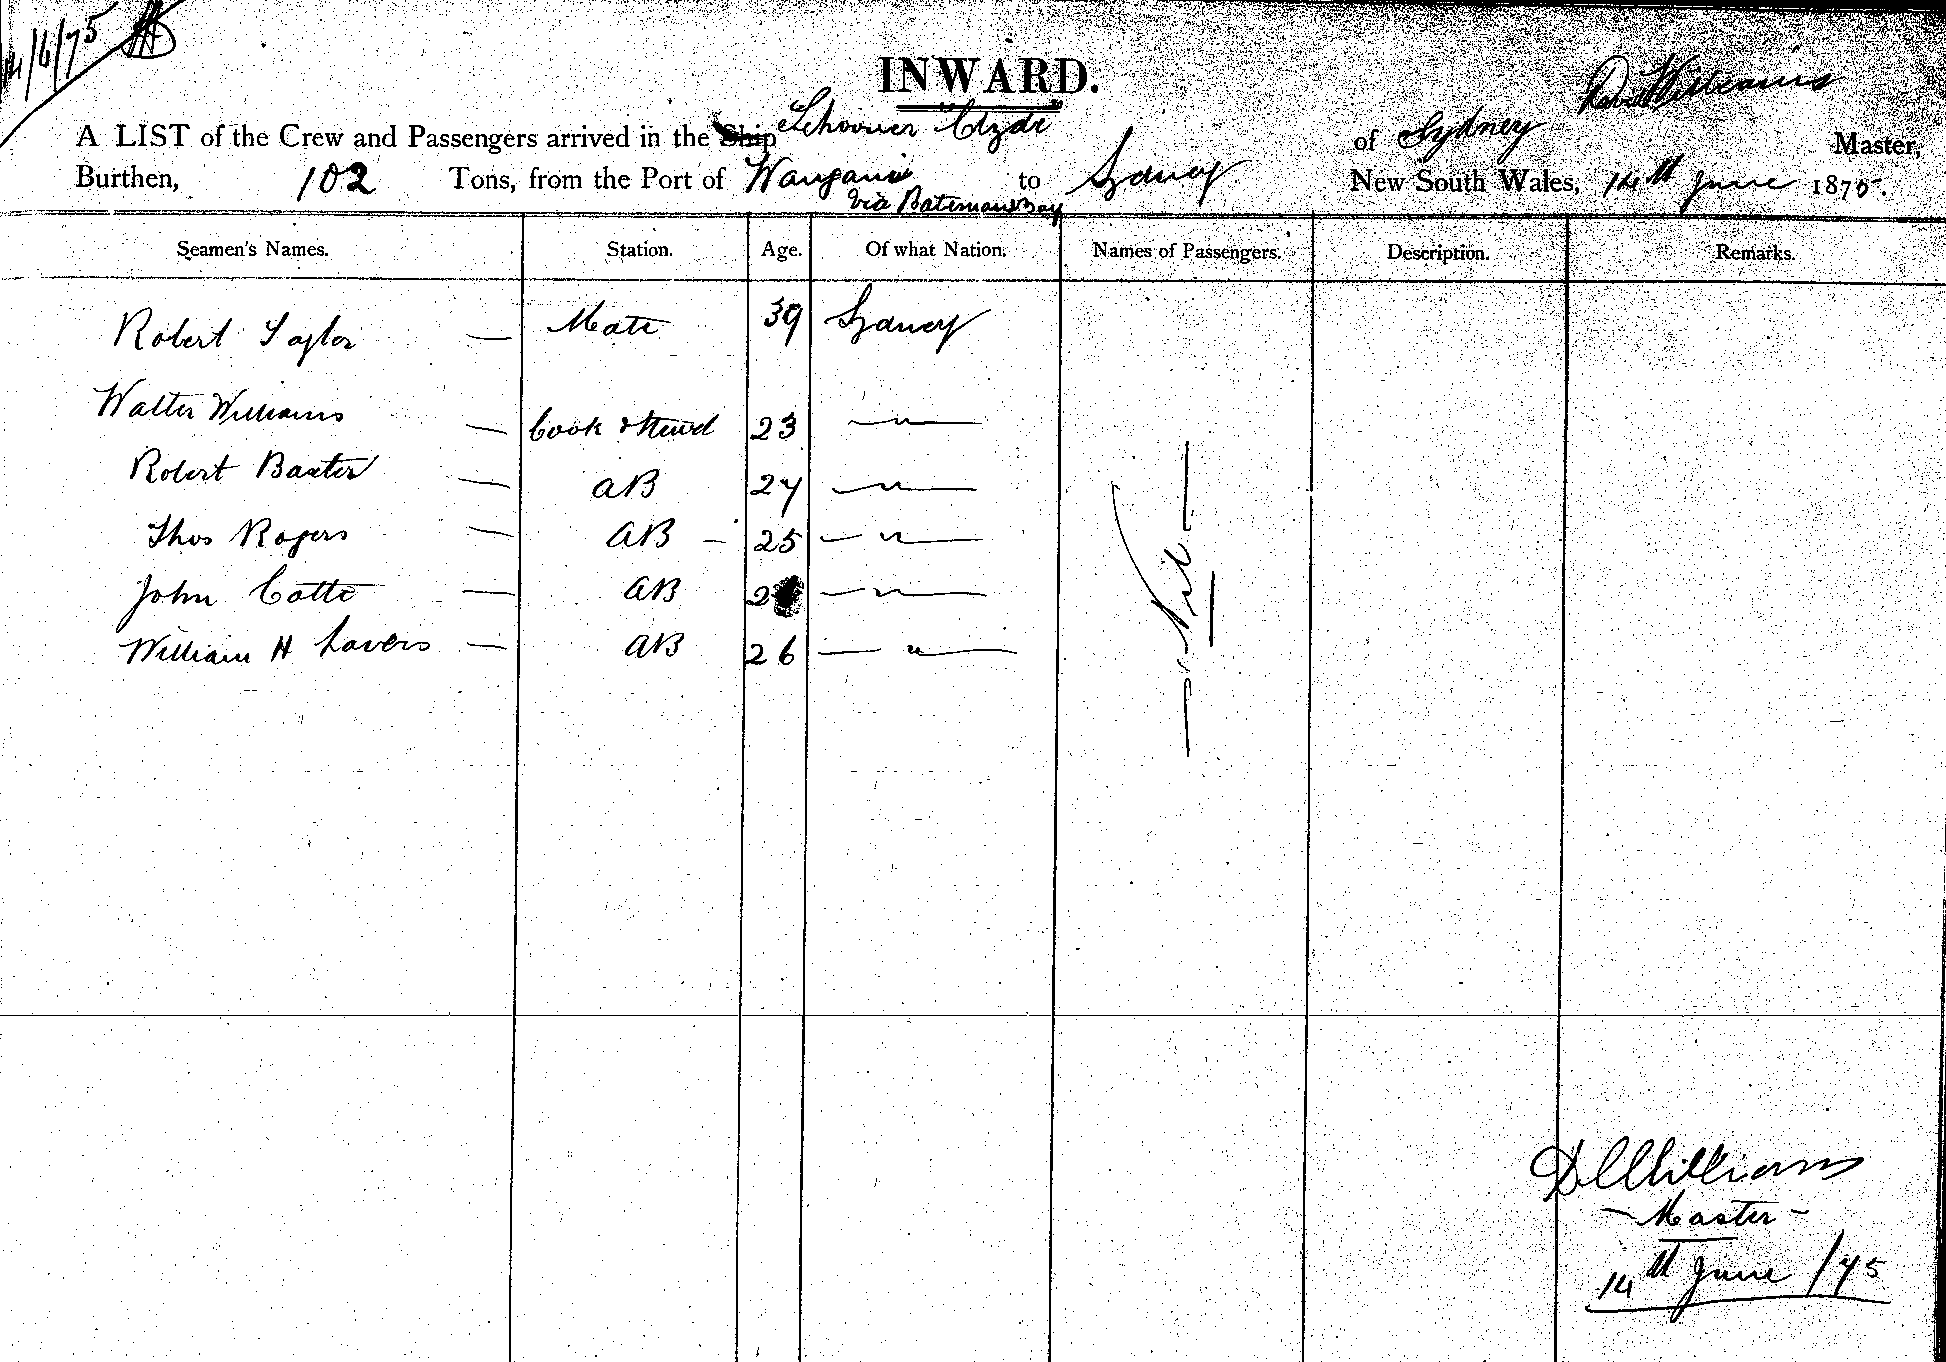 14/6/75
INWARD.
A LIST of the Crew and Passengers arrived in the Ship Schooner Clyde of Sydney David Williams Master,
Burthen, 102 Tons, from the Port of Wanganui to Sydney New South Wales, 14th June 1875.
Via Batemans Bay
Seamen's Names. Station. Age. Of what Nation. Names of Passengers. Description. Remarks.
Robert Taylor — Mate 39 Sydney
Walter Williams — Cook & Stewd 23 — " —
Robert Baxter — AB 24 — " —
Thos Rogers — AB – 25 — " —
John Catto — AB 2 — " —
William H Lavers — AB 26 — " —
— Nil —
D Williams
– Master –
14th June /75